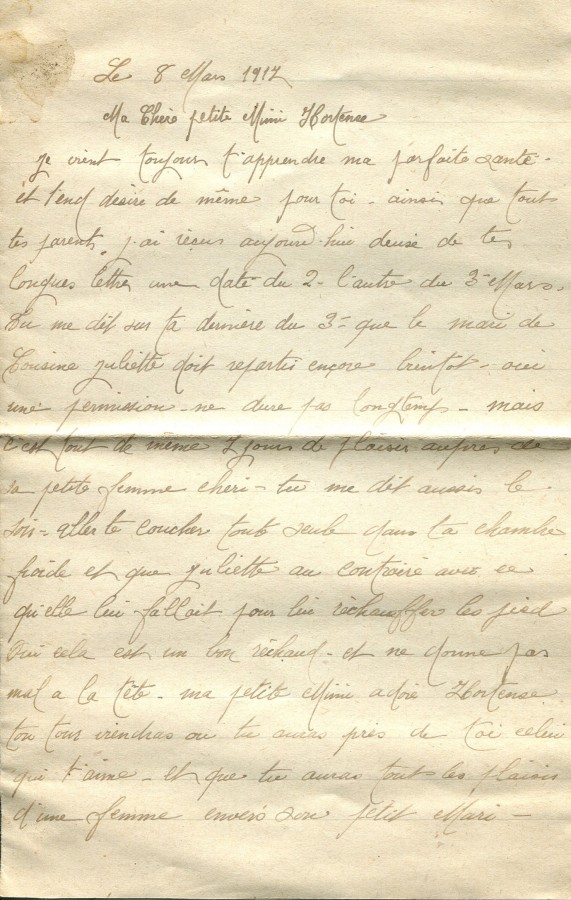 Le 8 Mars 1917
Ma Chère petite Mimi Hortense
je vient toujours t'apprendre ma parfaite santé -
et t'end désire de même pour toi - ainsi que tout
tes parents. j'ai reçus aujourd'hui deuse de tes
longues lettres une daté du 2 - l'autre du 3 - Mars.
Tu me dit sur ta dernière du 3 - que le mari de
Cousine juliette doit repartis encore bientot - oui
une permission - ne dure pas longtemps - mais
c'est tout de même 7 jours de plaisir auprès de
sa petite femme cheri - tu me dit aussis le
soir - aller te coucher toute seule dans ta chambre
froide et que juliette au contraire avais ce
qu'elle lui fallait pour lui réchauffer les pied
Oui cela est un bon réchaud - et ne donne pas
mal a la tête - ma petite Mimi adoré Hortense
ton tour viendras ou tu auras près de toi celui
qui t'aime - et que tu auras tout les plaisir
d'une femme envers son petit Mari -